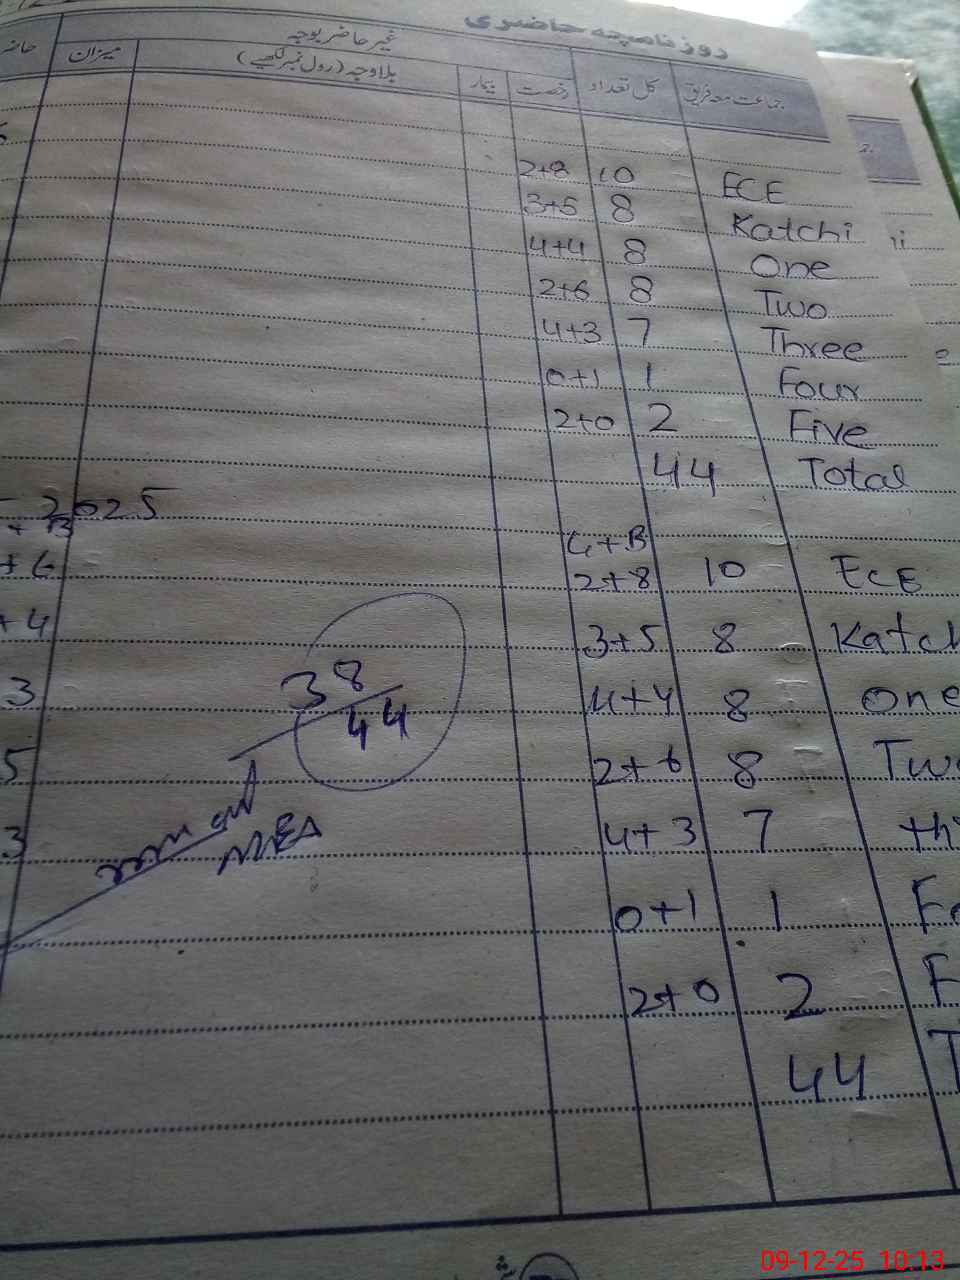 روزنامچہ حاضری
جماعت معہ فریق کل تعداد غیر حاضر بوجہ میزان
رخصت بیمار بلاوجہ (رول نمبر لکھیے)
2+8 10 ECE
3+5 8 Katchi
4+4 8 One
2+6 8 Two
4+3 7 Three
0+1 1 Four
2+0 2 Five
44 Total
2025
G+B
+6 2+8 10 ECE
+4 3+5 8 Katch
3 38/44 4+4 8 One
5 2+6 8 Tw
3 MEA 4+3 7 th
0+1 1 Fo
2+0 2 F
44 T
09-12-25 10:13